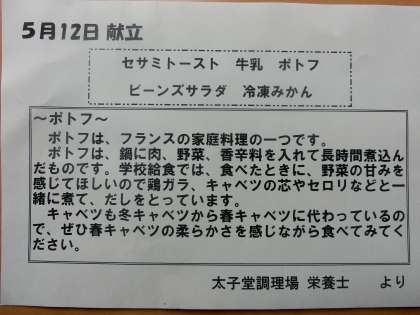 5月12日 献立
セサミトースト 牛乳 ポトフ
ビーンズサラダ 冷凍みかん
～ポトフ～
ポトフは、フランスの家庭料理の一つです。
ポトフは、鍋に肉、野菜、香辛料を入れて長時間煮込ん
だものです。学校給食では、食べたときに、野菜の甘みを
感じてほしいので鶏ガラ、キャベツの芯やセロリなどと一
緒に煮て、だしをとっています。
キャベツも冬キャベツから春キャベツに代わっているの
で、ぜひ春キャベツの柔らかさを感じながら食べてみてく
ださい。
太子堂調理場 栄養士 より